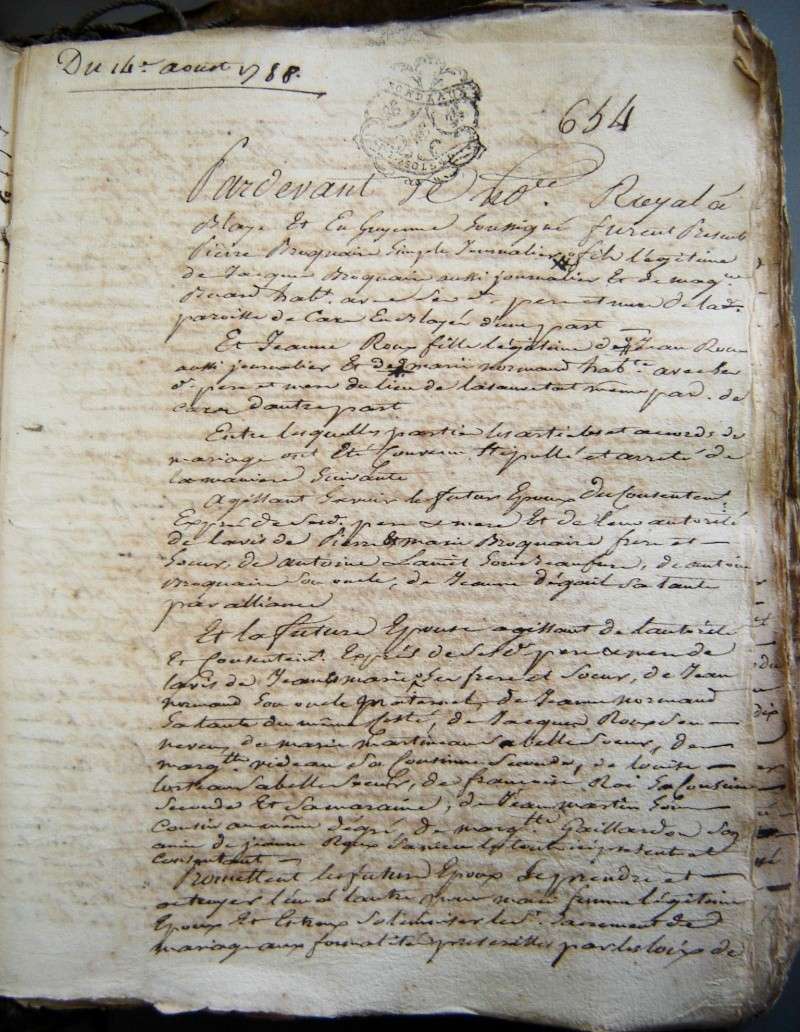 Du 14e aoust 1788.
BORDEAUX
654
Pardevant le Nore. Royal à
Blaye Et En Guyenne Soussigné furent Presents
Pierre Broquaire Simple Journalier fils légitime
de Jacques Broquaire aussi journalier Et de magne
habt. avec ses d. pere et mere de la de.
paroisse de Cars En Blayés d'une part
Et Jeanne Roux fille légitime de Jean Roux
aussi journalier Et de marie normand habte. avec ses
d. pere et mere du lieu de la sauvetat meme par. de
Cars d'autre part
Entre lesquelles parties les articles et accords de
mariage ont Eté Convenus Stipullé et arreté de
la maniere Suivante
Agissant Savoir le futur Epoux du Consentemt.
Exprés de Sesd. pere & mere Et de leur autorité
de l'avis de Pierre et marie Broquaire frere et
Soeur, de antoine Son beau frere, de antoine
Broquaire Son oncle, de Jeanne dégail Sa tante
par alliance
Et la future Epouse agissant de l'autorité
Et Consentemt. Exprés de Sesd. pere & mere de
l'avis de Jean & marie Ses frere et Soeur, de Jean
normand Son oncle maternel, de Jeanne normand
Sa tante du même Costé, de Jacques Roux Son
neveu, de marie martineau Sa belle Soeur, de
margte. videau Sa Cousine Seconde, de louise
Sa belle Soeur, de françoise Roi Sa Cousine
Seconde Et Sa maraine, de Jean martin Son
Cousin au même dégré de margte. Gaillardon Sa
amie de jeanne Roux le tout icy présent et
Consentant
Promettent les futurs Epoux Se prendre et
octroyer l'un à l'autre pour mari femme légitime
Epoux Et Entr'eux Solemniser le St. Sacrement de
mariage aux formalités prescrittes par les loix de